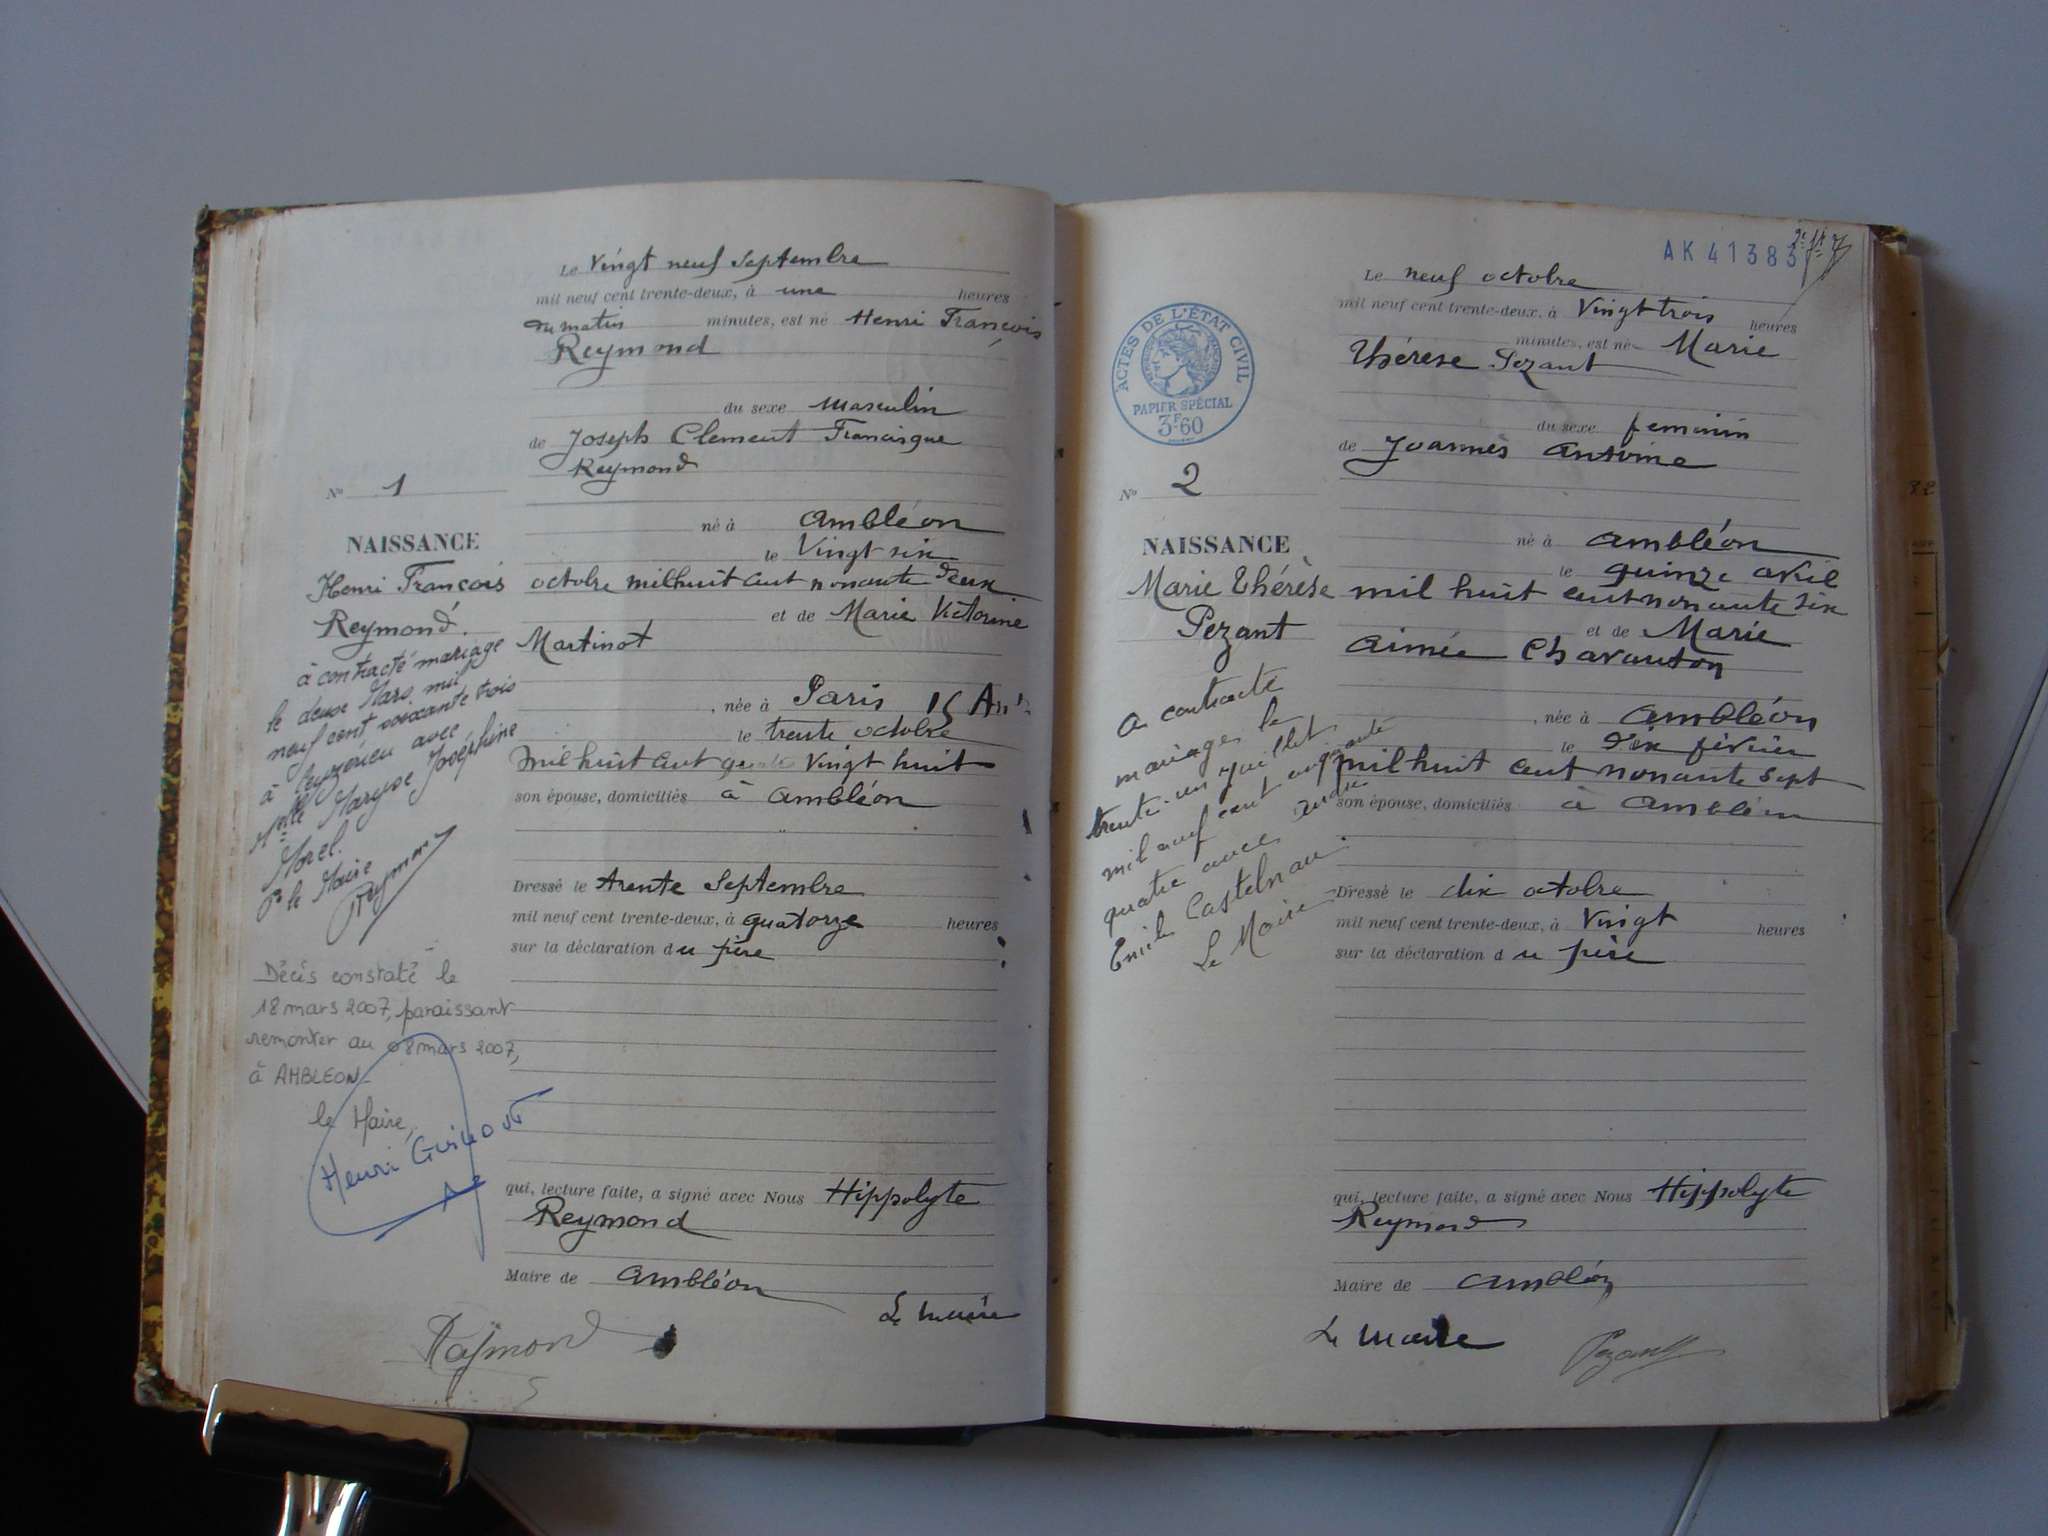 Le Vingt neuf Septembre
mil neuf cent trente-deux, à une heures
du matin minutes, est né Henri François
Reymond
du sexe masculin
de Joseph Clement Francisque
Reymond
No 1
né à Ambléon
NAISSANCE
le Vingt six
Henri François
octobre mil huit cent nonante deux
Reymond.
et de Marie Victorine
Martinot
à contracté mariage
le deux Mars mil
neuf cent soixante trois
à Peyzérieu avec
Mlle Maryse Joséphine
Morel.
Pr le Maire
Reymond
, née à Paris 15 Arr
le trente octobre
mil huit cent quatre Vingt huit
son épouse, domiciliés à Ambléon
Dressé le trente Septembre
mil neuf cent trente-deux, à quatorze heures
sur la déclaration du père
Décès constaté le
18 mars 2007, paraissant
remonter au 08 mars 2007,
à AMBLEON
le Maire,
Henri
qui, lecture faite, a signé avec Nous Hippolyte
Reymond
Maire de Ambléon
Le maire
Raymond
AK 41383
Le neuf octobre
mil neuf cent trente-deux, à Vingt trois heures
minutes, est né Marie
Thérèse Pezant
ACTES DE L'ÉTAT CIVIL
PAPIER SPÉCIAL
3F60
du sexe feminin
de Joannès Antoine
No 2
né à Ambléon
NAISSANCE
le quinze avril
Marie Thérèse
mil huit cent nonante six
Pezant
et de Marie
Aimée Chavanton
A contracté
mariage le
trente-un Juillet
mil neuf cent cinquante
quatre avec André
Emile Castelnau.
Le Maire
, née à Ambléon
le dix février
mil huit cent nonante sept
son épouse, domiciliés à Ambléon
Dressé le dix octobre
mil neuf cent trente-deux, à Vingt heures
sur la déclaration du père
qui, lecture faite, a signé avec Nous Hippolyte
Reymond
Maire de Ambléon
Le maire
Pezant